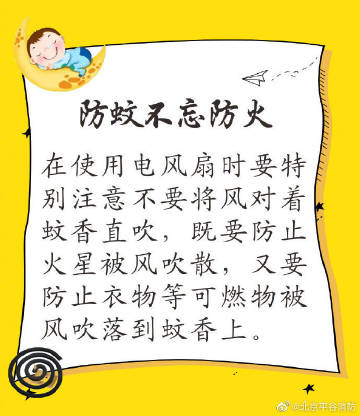 防蚊不忘防火
在使用电风扇时要特
别注意不要将风对着
蚊香直吹，既要防止
火星被风吹散，又要
防止衣物等可燃物被
风吹落到蚊香上。
@北京平谷消防